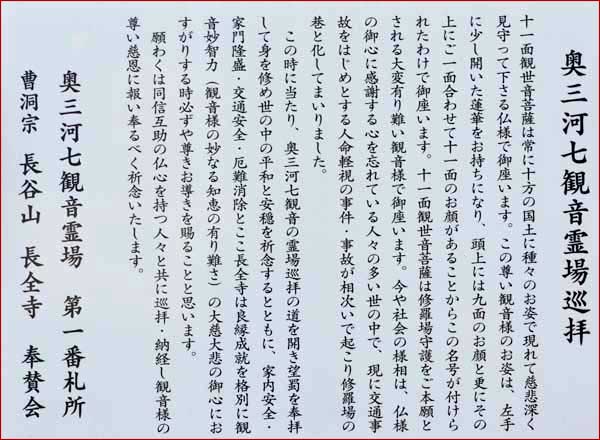 奥三河七観音霊場巡拝
十一面観世音菩薩は常に十方の国土に種々のお姿で現れて慈悲深く
見守って下さる仏様で御座います。この尊い観音様のお姿は、左手
に少し開いた蓮華をお持ちになり、頭上には九面のお顔と更にその
上にご一面合わせて十一面のお顔があることからこの名号が付けら
れたわけで御座います。十一面観世音菩薩は修羅場守護をご本願と
される大変有り難い観音様で御座います。今や社会の様相は、仏様
の御心に感謝する心を忘れている人々の多い世の中で、現に交通事
故をはじめとする人命軽視の事件・事故が相次いで起こり修羅場の
巷と化してまいりました。
この時に当たり、奥三河七観音の霊場巡拝の道を開き望蜀を奉拝
して身を修め世の中の平和と安穏を祈念するとともに、家内安全・
家門隆盛・交通安全・厄難消除とここ長全寺は良縁成就を格別に観
音妙智力（観音様の妙なる知恵の有り難さ）の大慈大悲の御心にお
すがりする時必ずや尊きお導きを賜ることと思います。
願わくは同信互助の仏心を持つ人々と共に巡拝・納経し観音様の
尊い慈恩に報い奉るべく祈念いたします。
奥三河七観音霊場 第一番札所
曹洞宗 長谷山 長全寺 奉賛会